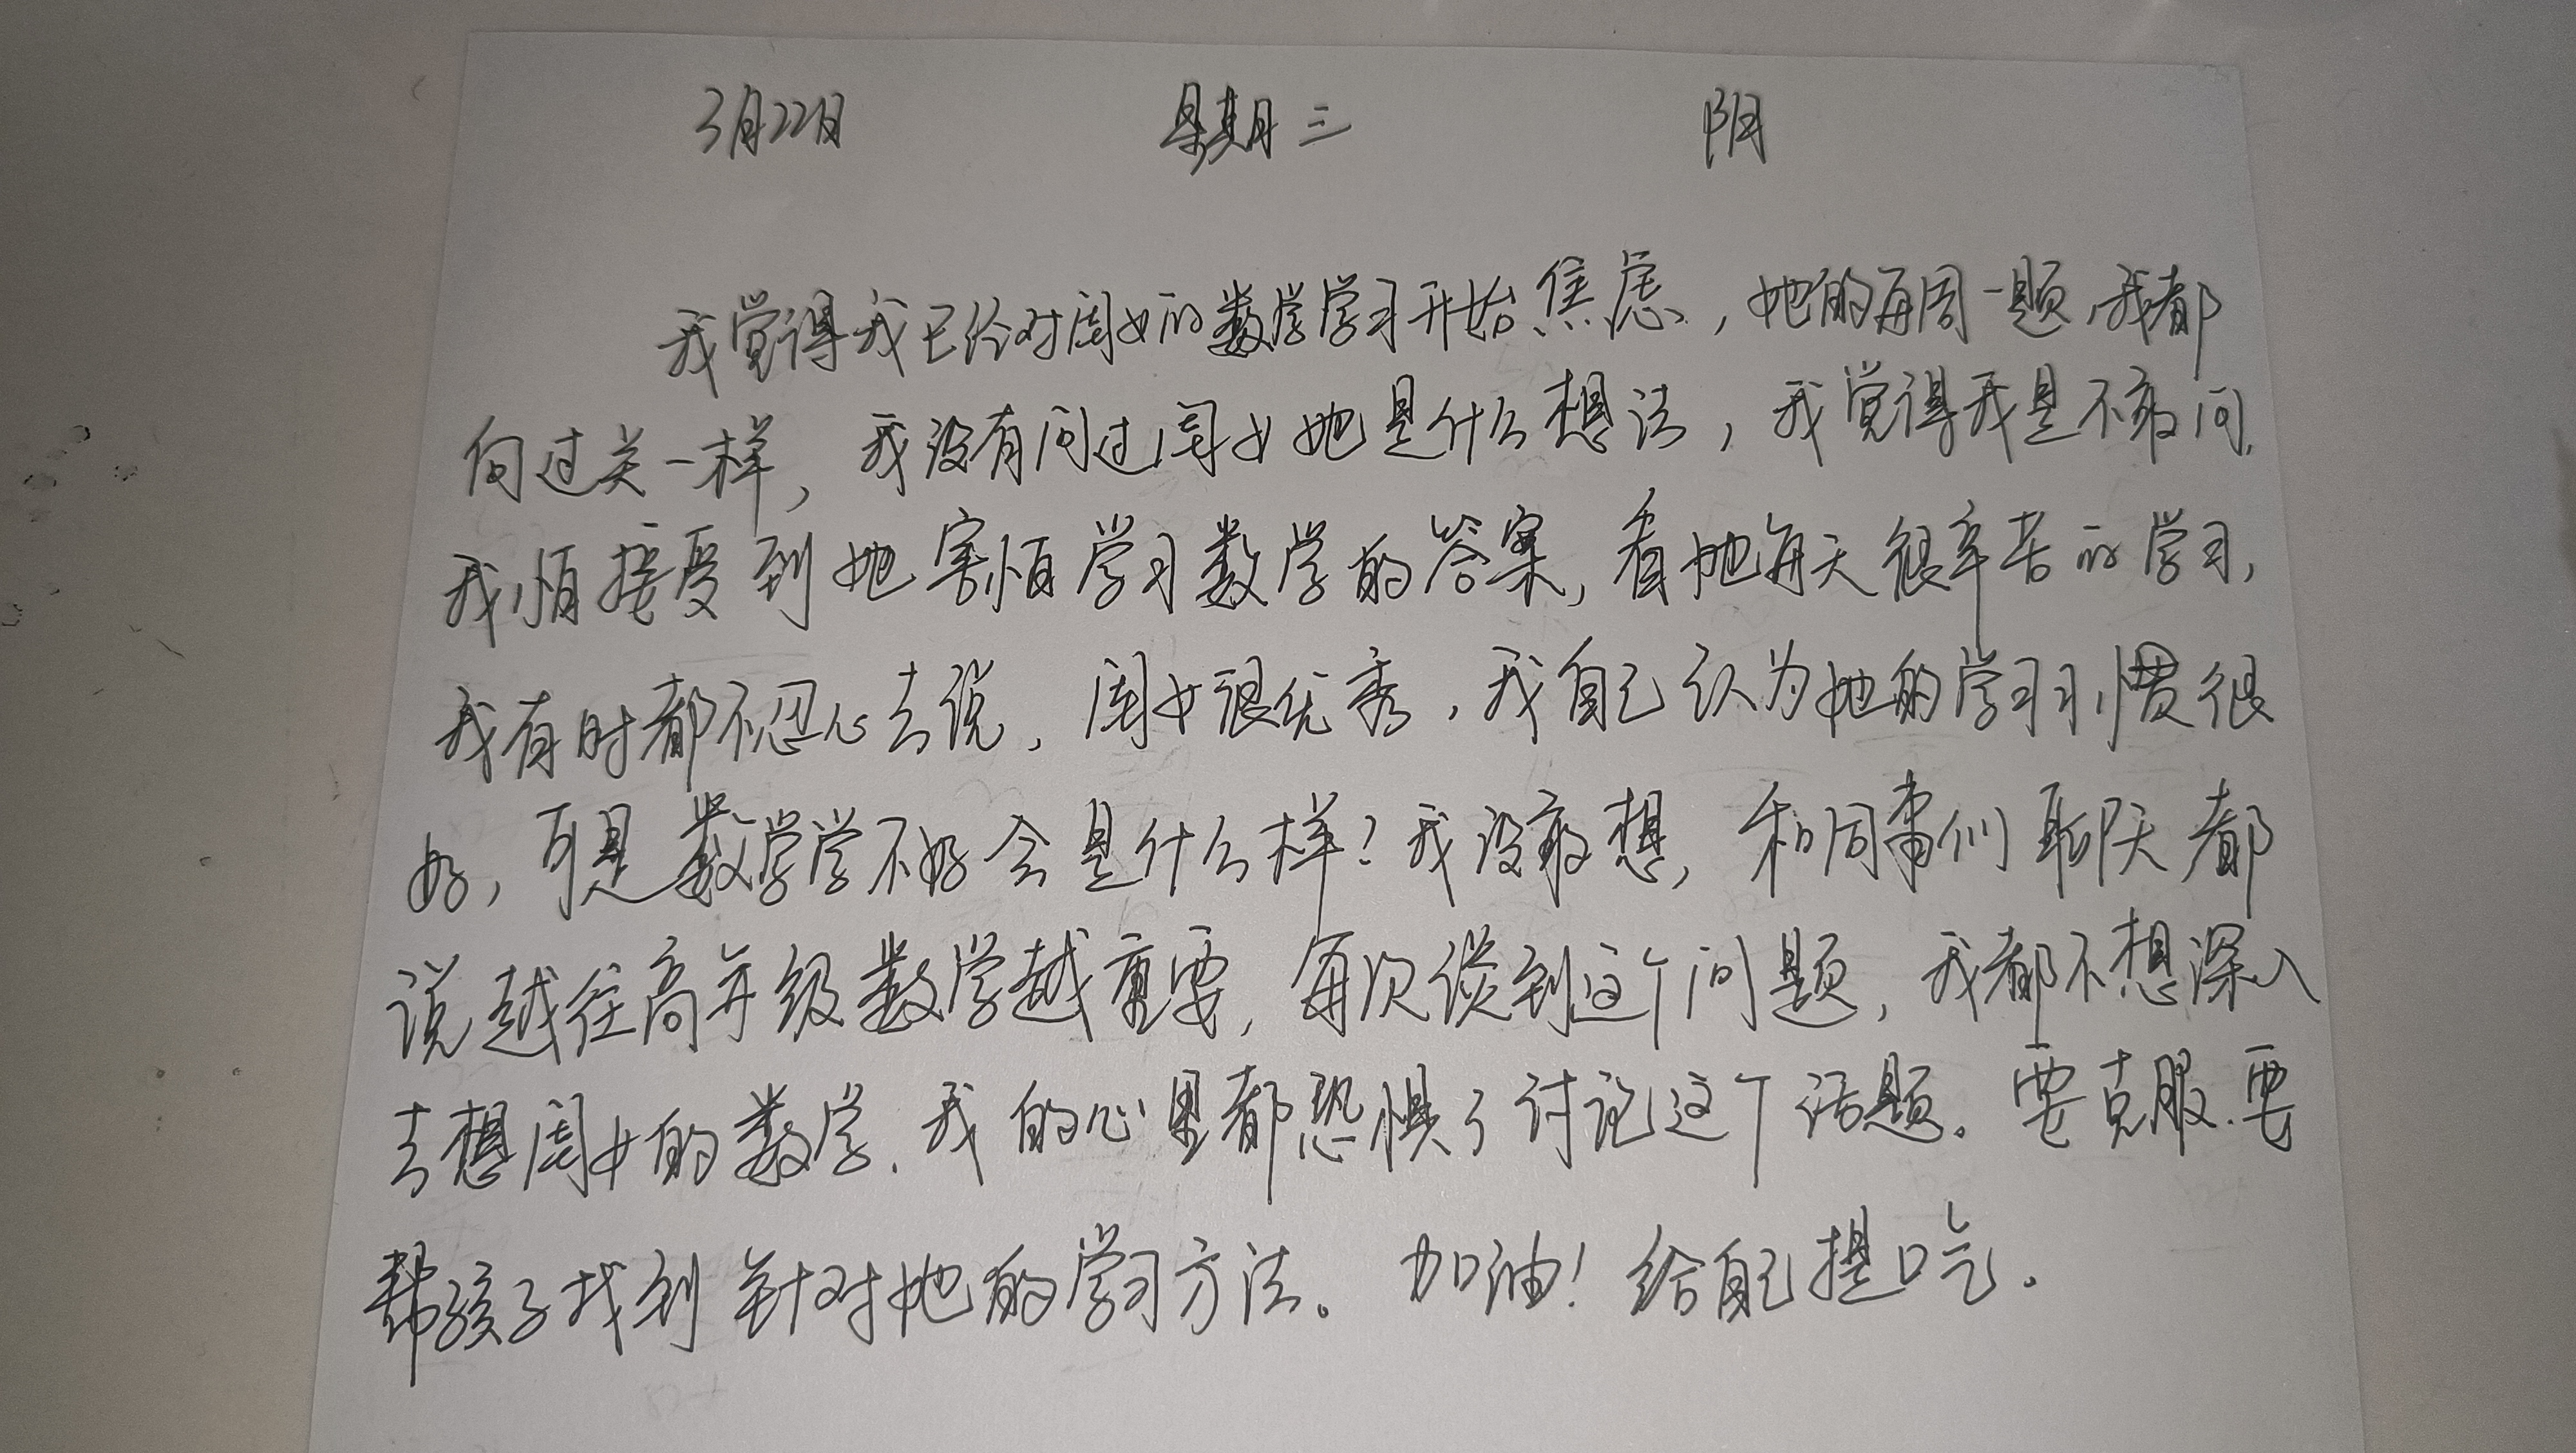 3月22日 星期三 阴
我觉得我已经对闺女的数学学习开始焦虑，她的每周一题，我都
向过关一样，我没有问过闺女她是什么想法，我觉得我是不敢问，
我怕接受到她害怕学习数学的答案，看她每天很辛苦的学习，
我有时都不忍心去说，闺女很优秀，我自己认为她的学习习惯很
好，可是数学学不好会是什么样？我没敢想，和同事们聊天都
说越往高年级数学越重要，每次谈到这个问题，我都不想深入
去想闺女的数学，我的心里都恐惧了讨论这个话题。要克服，要
帮孩子找到针对她的学习方法。加油！给自己提口气。